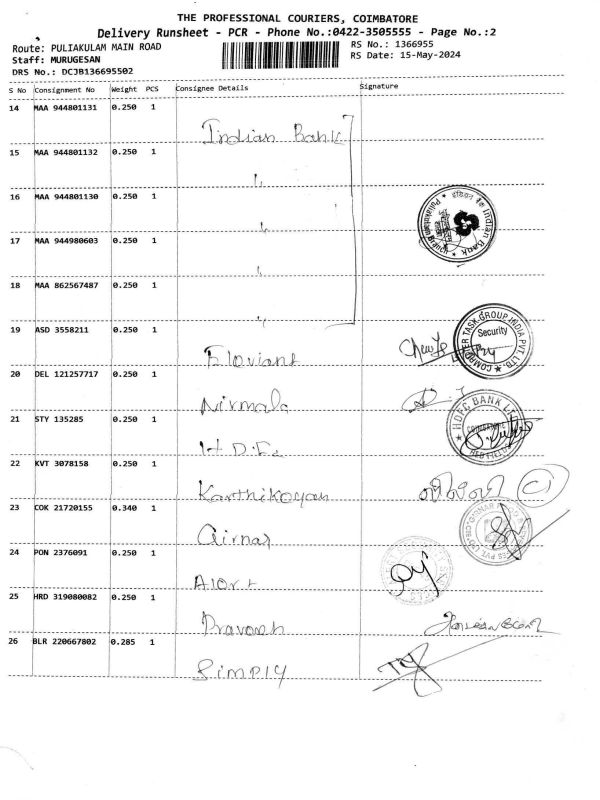 THE PROFESSIONAL COURIERS, COIMBATORE
Delivery Runsheet - PCR - Phone No.:0422-3505555 - Page No.:2
Route: PULIAKULAM MAIN ROAD
RS No.: 1366955
Staff: MURUGESAN
RS Date: 15-May-2024
DRS No.: DCJB136695502
S No Consignment No Weight PCS Consignee Details Signature
14 MAA 944801131 0.250 1
Indian Bank
15 MAA 944801132 0.250 1
16 MAA 944801130 0.250 1
17 MAA 944980603 0.250 1
Puliakulam Branch Indian Bank
18 MAA 862567487 0.250 1
19 ASD 3558211 0.250 1
COMPUTER TASK GROUP INDIA PVT. LTD.
Security
20 DEL 121257717 0.250 1
Nirmala
21 STY 135285 0.250 1
HDFC BANK LTD
COIMBATORE
22 KVT 3078158 0.250 1
Karthikeyan
23 COK 21720155 0.340 1
24 PON 2376091 0.250 1
25 HRD 319080082 0.250 1
26 BLR 220667802 0.285 1
Simply